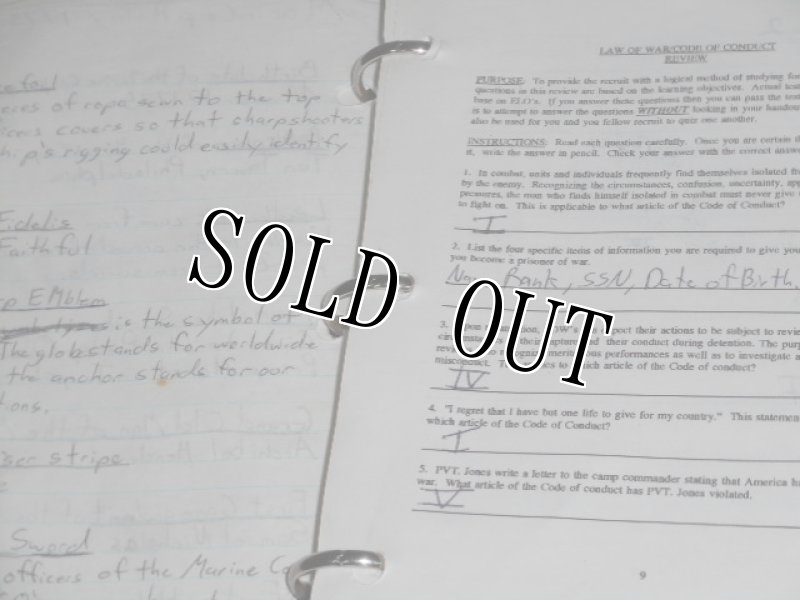 ce foil
eces of rope sewn to the top
icers covers so that sharpshooters
hip's rigging could easily identify
Fidelis
Faithful
EMblem
is the symbol of
The glob stands for worldwide
the anchor stands for our
ions.
ser stripe
Sword
officers of the Marine Co
LAW OF WAR/CODE OF CONDUCT
REVIEW
PURPOSE: To provide the recruit with a logical method of studying for
questions in this review are based on the learning objectives. Actual test
base on ELO's. If you answer these questions then you can pass the test
is to attempt to answer the questions WITHOUT looking in your handout
also be used for you and you fellow recruit to quiz one another.
INSTRUCTIONS: Read each question carefully. Once you are certain th
it, write the answer in pencil. Check your answer with the correct answer
1. In combat, units and individuals frequently find themselves isolated fr
by the enemy. Recognizing the circumstances, confusion, uncertainty, app
pressures, the man who finds himself isolated in combat must never give u
to fight on. This is applicable to what article of the Code of Conduct?
I
2. List the four specific items of information you are required to give you
you become a prisoner of war.
Rank, SSN, Date of Birth.
3. pon, OW's pect their actions to be subject to revie
their capture d their conduct during detention. The purp
meritorious performances as well as to investigate a
misconduct. to which article of the Code of conduct?
IV
4. "I regret that I have but one life to give for my country." This statemen
which article of the Code of Conduct?
I
5. PVT. Jones write a letter to the camp commander stating that America h
war. What article of the Code of conduct has PVT. Jones violated.
V
9
SOLD OUT